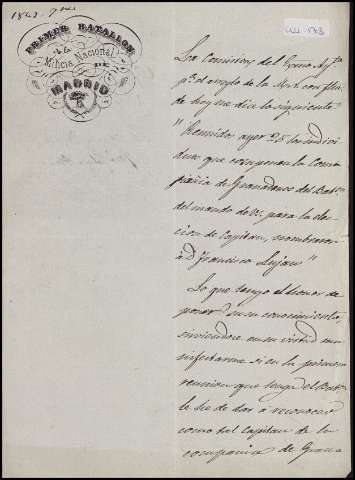 1842-7bre
PRIMER BATALLON
de la
Milicia Nacional
DE
MADRID
La Comision del Excmo Ay.to
p.a el arreglo de la M.N. con fha
de hoy me dice lo siguiente
"Reunidos ayer 25 los indivi
duos que componen la Com
pañia de Granaderos del Bat.on
del mando de V. para la elec
cion de Capitan, nombraron
a D. Francisco Lujan"
Lo que tengo el honor de
poner en su conocimiento,
sirviendose en su virtud ma
nifestarme si en la primera
reunion que tenga el Bat.on
le he de dar á reconocer
como tal Capitan de la
compañia de Grana